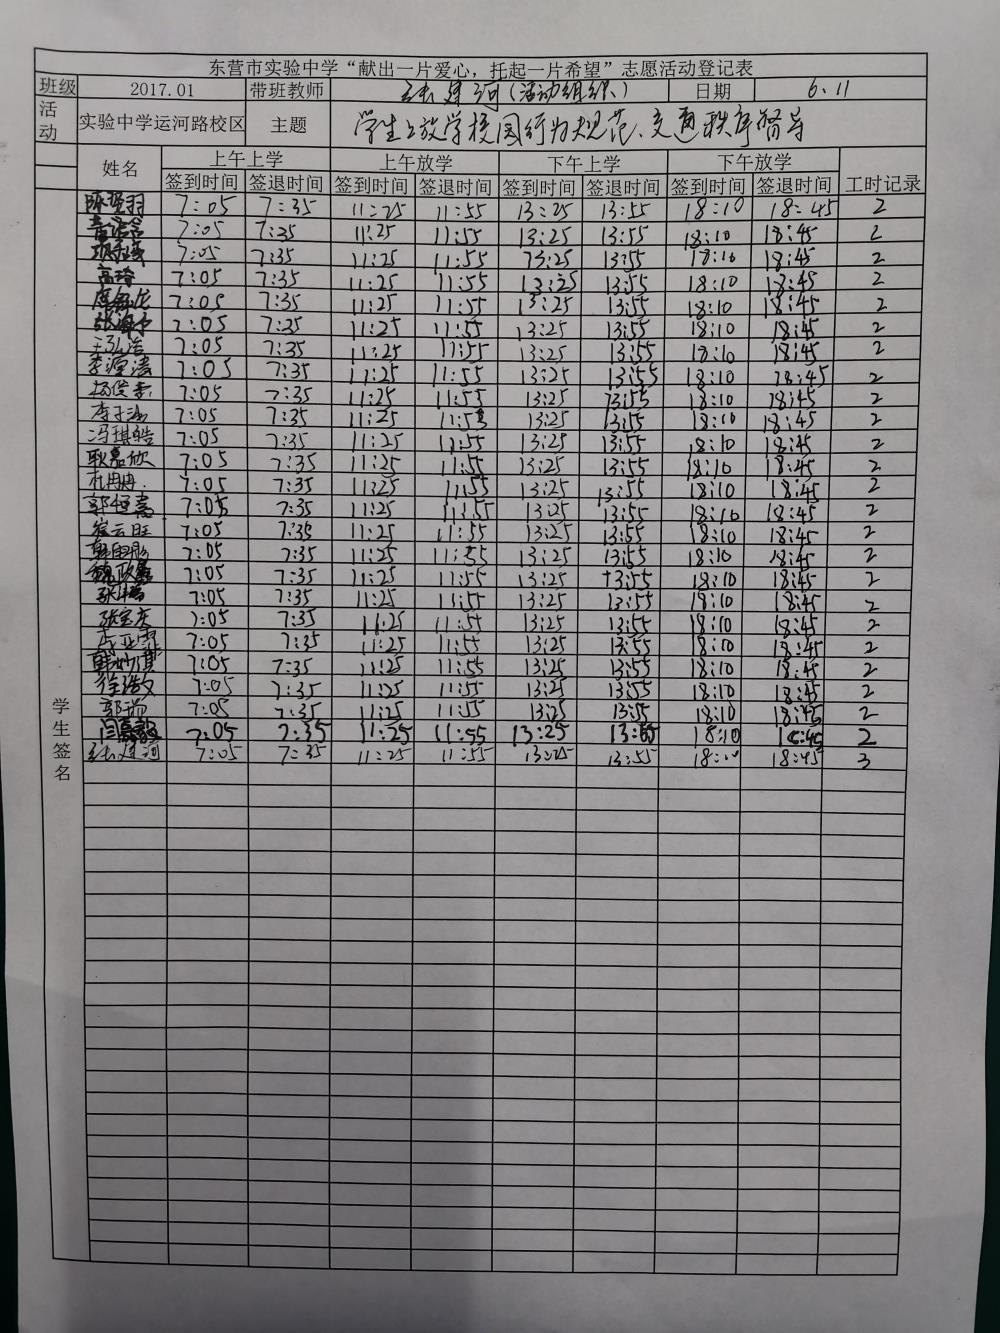 东营市实验中学“献出一片爱心，托起一片希望”志愿活动登记表
班级 2017.01 带班教师 张建河(活动组织) 日期 6.11
活动 实验中学运河路校区 主题 学生上放学校园行为规范、交通秩序督导
姓名 上午上学 上午放学 下午上学 下午放学 工时记录
签到时间 签退时间 签到时间 签退时间 签到时间 签退时间 签到时间 签退时间
学生签名
7:05 7:35 11:25 11:55 13:25 13:55 18:10 18:45 2
7:05 7:35 11:25 11:55 13:25 13:55 18:10 18:45 2
7:05 7:35 11:25 11:55 13:25 13:55 18:10 18:45 2
高琦 7:05 7:35 11:25 11:55 13:25 13:55 18:10 18:45 2
7:05 7:35 11:25 11:55 13:25 13:55 18:10 18:45 2
7:05 7:35 11:25 11:55 13:25 13:55 18:10 18:45 2
王弘浩 7:05 7:35 11:25 11:55 13:25 13:55 18:10 18:45 2
7:05 7:35 11:25 11:55 13:25 13:55 18:10 18:45 2
7:05 7:35 11:25 11:55 13:25 13:55 18:10 18:45 2
7:05 7:35 11:25 11:55 13:25 13:55 18:10 18:45 2
冯琪皓 7:05 7:35 11:25 11:55 13:25 13:55 18:10 18:45 2
耿嘉欣 7:05 7:35 11:25 11:55 13:25 13:55 18:10 18:45 2
7:05 7:35 11:25 11:55 13:25 13:55 18:10 18:45 2
郭恒嘉 7:05 7:35 11:25 11:55 13:25 13:55 18:10 18:45 2
崔云旺 7:05 7:35 11:25 11:55 13:25 13:55 18:10 18:45 2
7:05 7:35 11:25 11:55 13:25 13:55 18:10 18:45 2
7:05 7:35 11:25 11:55 13:25 13:55 18:10 18:45 2
7:05 7:35 11:25 11:55 13:25 13:55 18:10 18:45 2
7:05 7:35 11:25 11:55 13:25 13:55 18:10 18:45 2
7:05 7:35 11:25 11:55 13:25 13:55 18:10 18:45 2
7:05 7:35 11:25 11:55 13:25 13:55 18:10 18:45 2
徐浩文 7:05 7:35 11:25 11:55 13:25 13:55 18:10 18:45 2
郭瑞 7:05 7:35 11:25 11:55 13:25 13:55 18:10 18:45 2
7:05 7:35 11:25 11:55 13:25 13:55 18:10 18:45 2
张建河 7:05 7:35 11:25 11:55 13:25 13:55 18:10 18:45 3